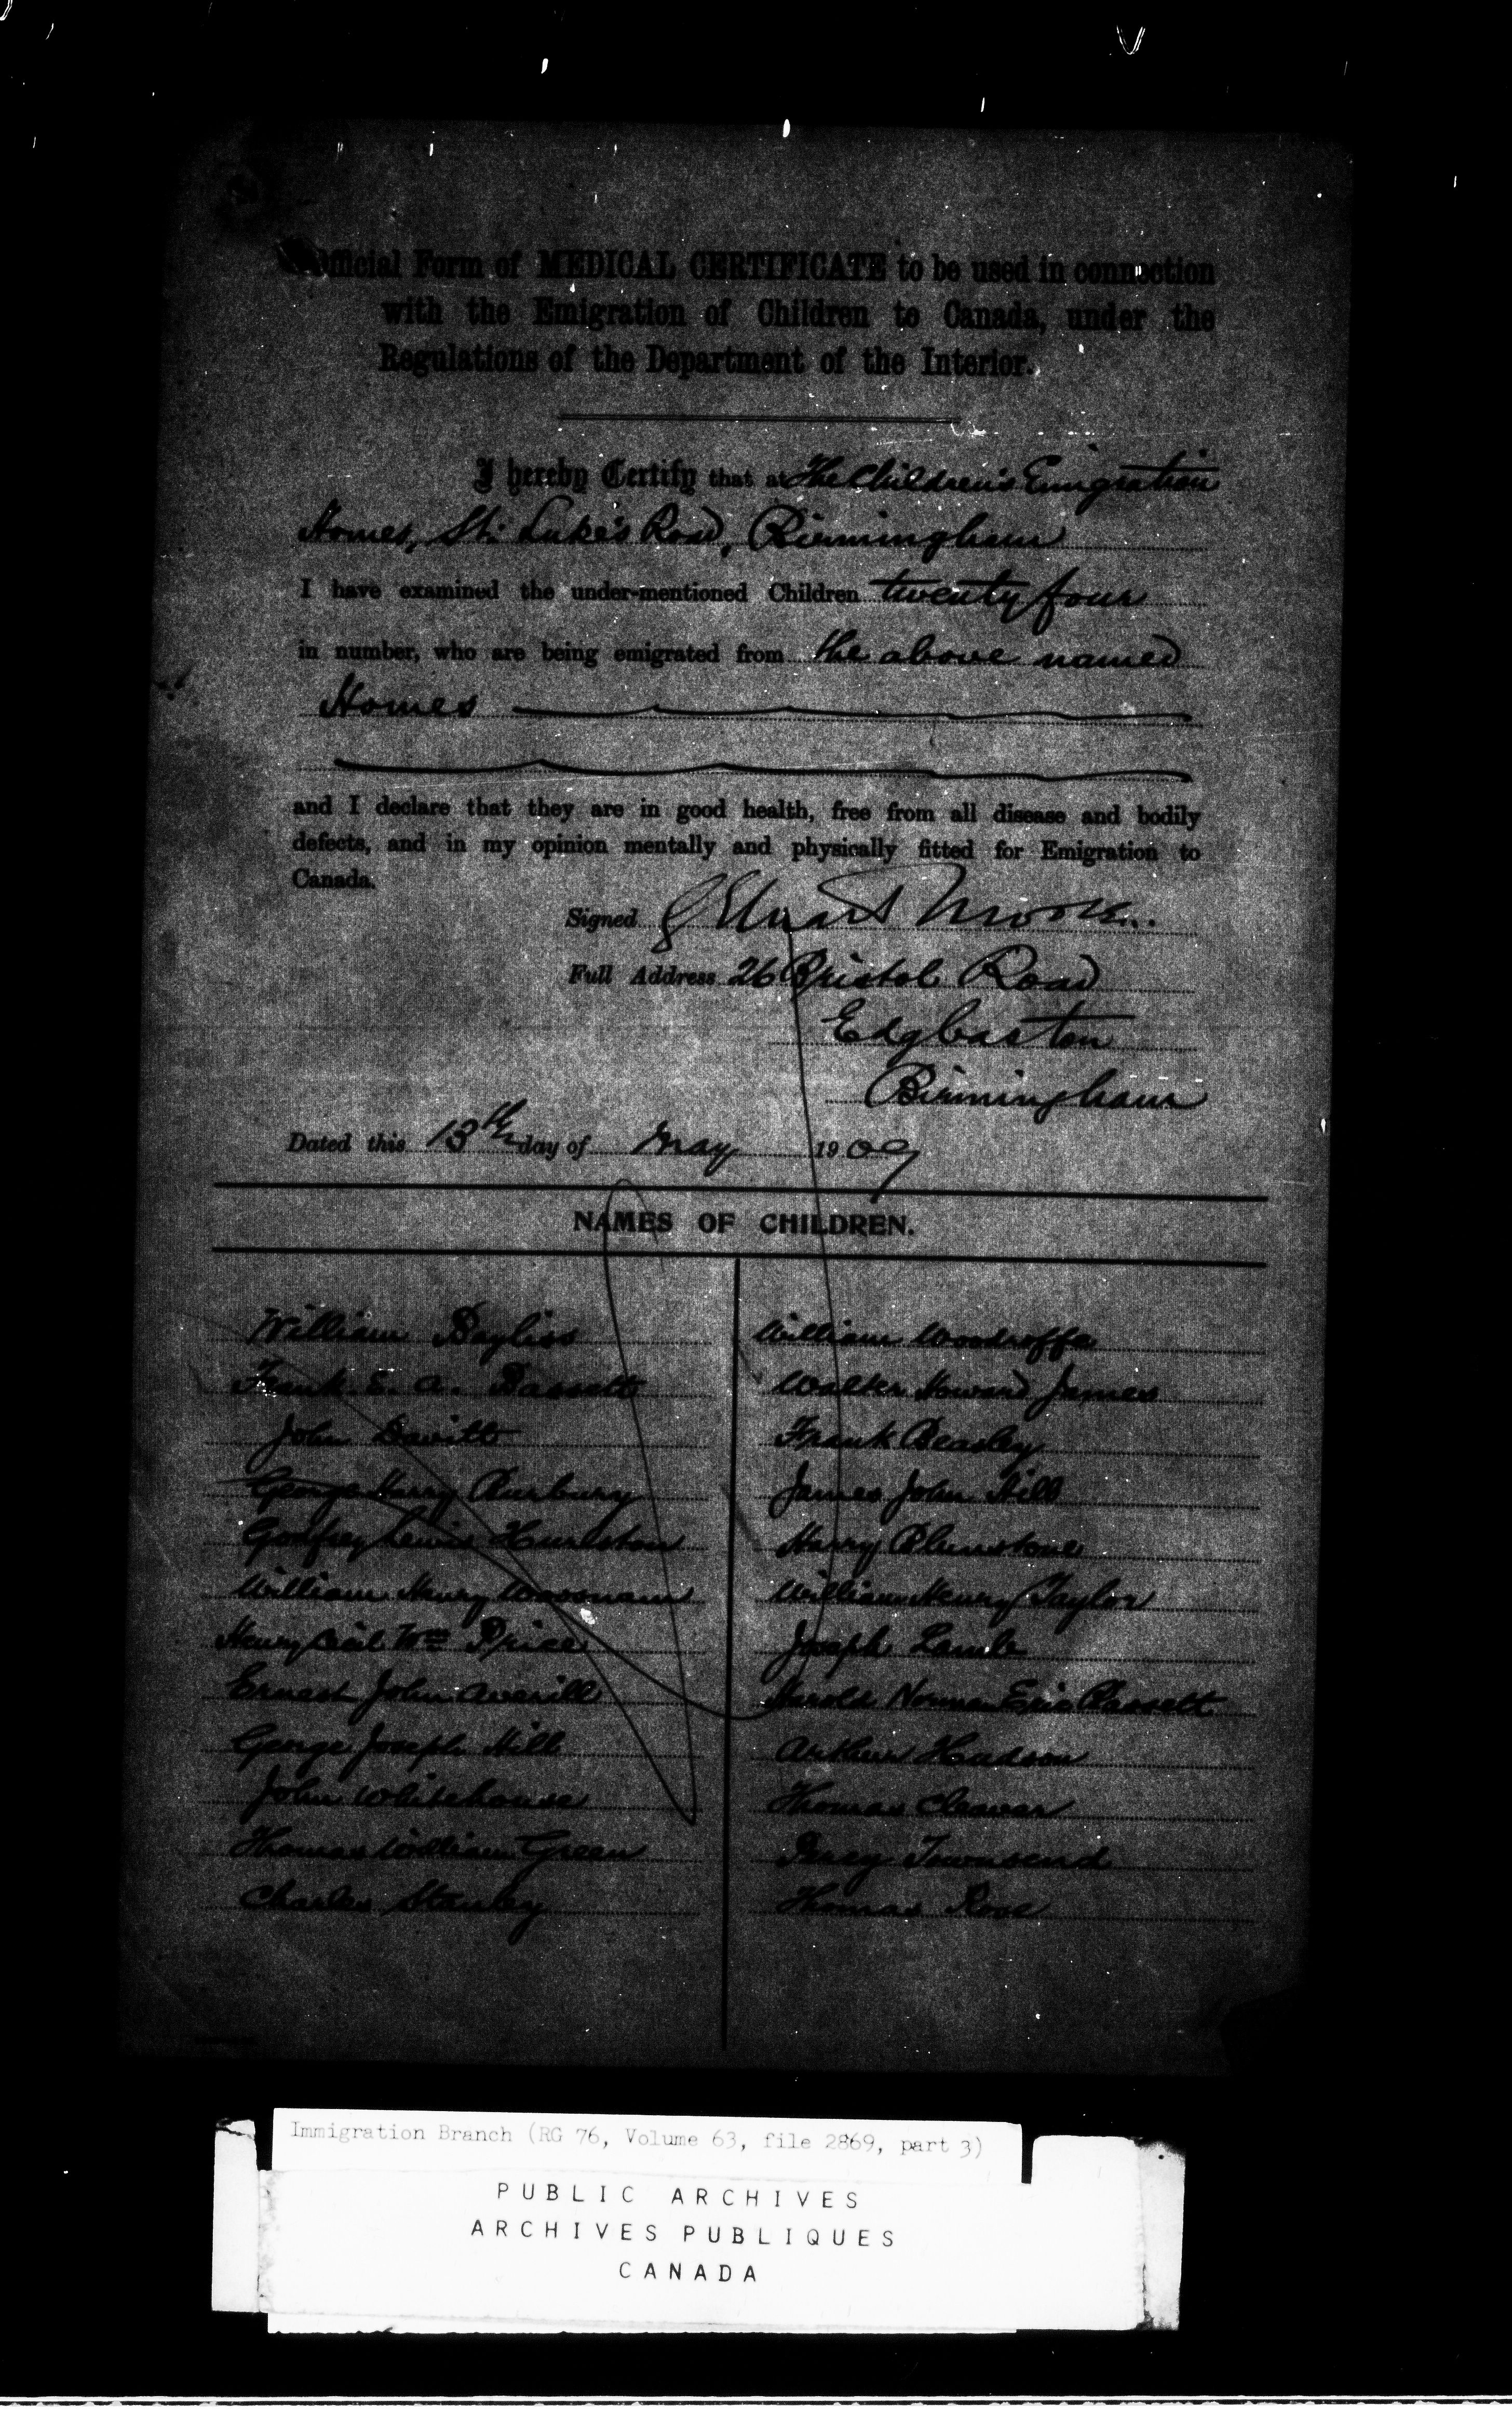 Official Form of MEDICAL CERTIFICATE to be used in connection
with the Emigration of Children to Canada, under the
Regulations of the Department of the Interior.
I hereby Certify that at The Children's Emigration
Homes, St. Luke's Road, Birmingham
I have examined the under-mentioned Children twenty four
in number, who are being emigrated from the above named
Homes
and I declare that they are in good health, free from all disease and bodily
defects, and in my opinion mentally and physically fitted for Emigration to
Canada.
Signed
Full Address 26 Bristol Road
Edgbaston
Birmingham
Dated this 13th day of May 1909
NAMES OF CHILDREN.
William Bayliss
Frank E. A. Bassett
John Davitt
George Harry Burbury
Godfrey Lewis
William Henry
Henry Cecil Wm Price
Ernest John Averill
George Joseph Hill
John Whitehouse
Thomas William Green
Charles Stanley
William Woodroffe
Walter Howard James
Frank Beasley
James John Hill
Harry Blunstone
William Henry Taylor
Joseph Lamb
Harold Norman Eric Bassett
Arthur Hudson
Thomas Cleaver
Percy Townsend
Thomas Rose
Immigration Branch (RG 76, Volume 63, file 2869, part 3)
PUBLIC ARCHIVES
ARCHIVES PUBLIQUES
CANADA